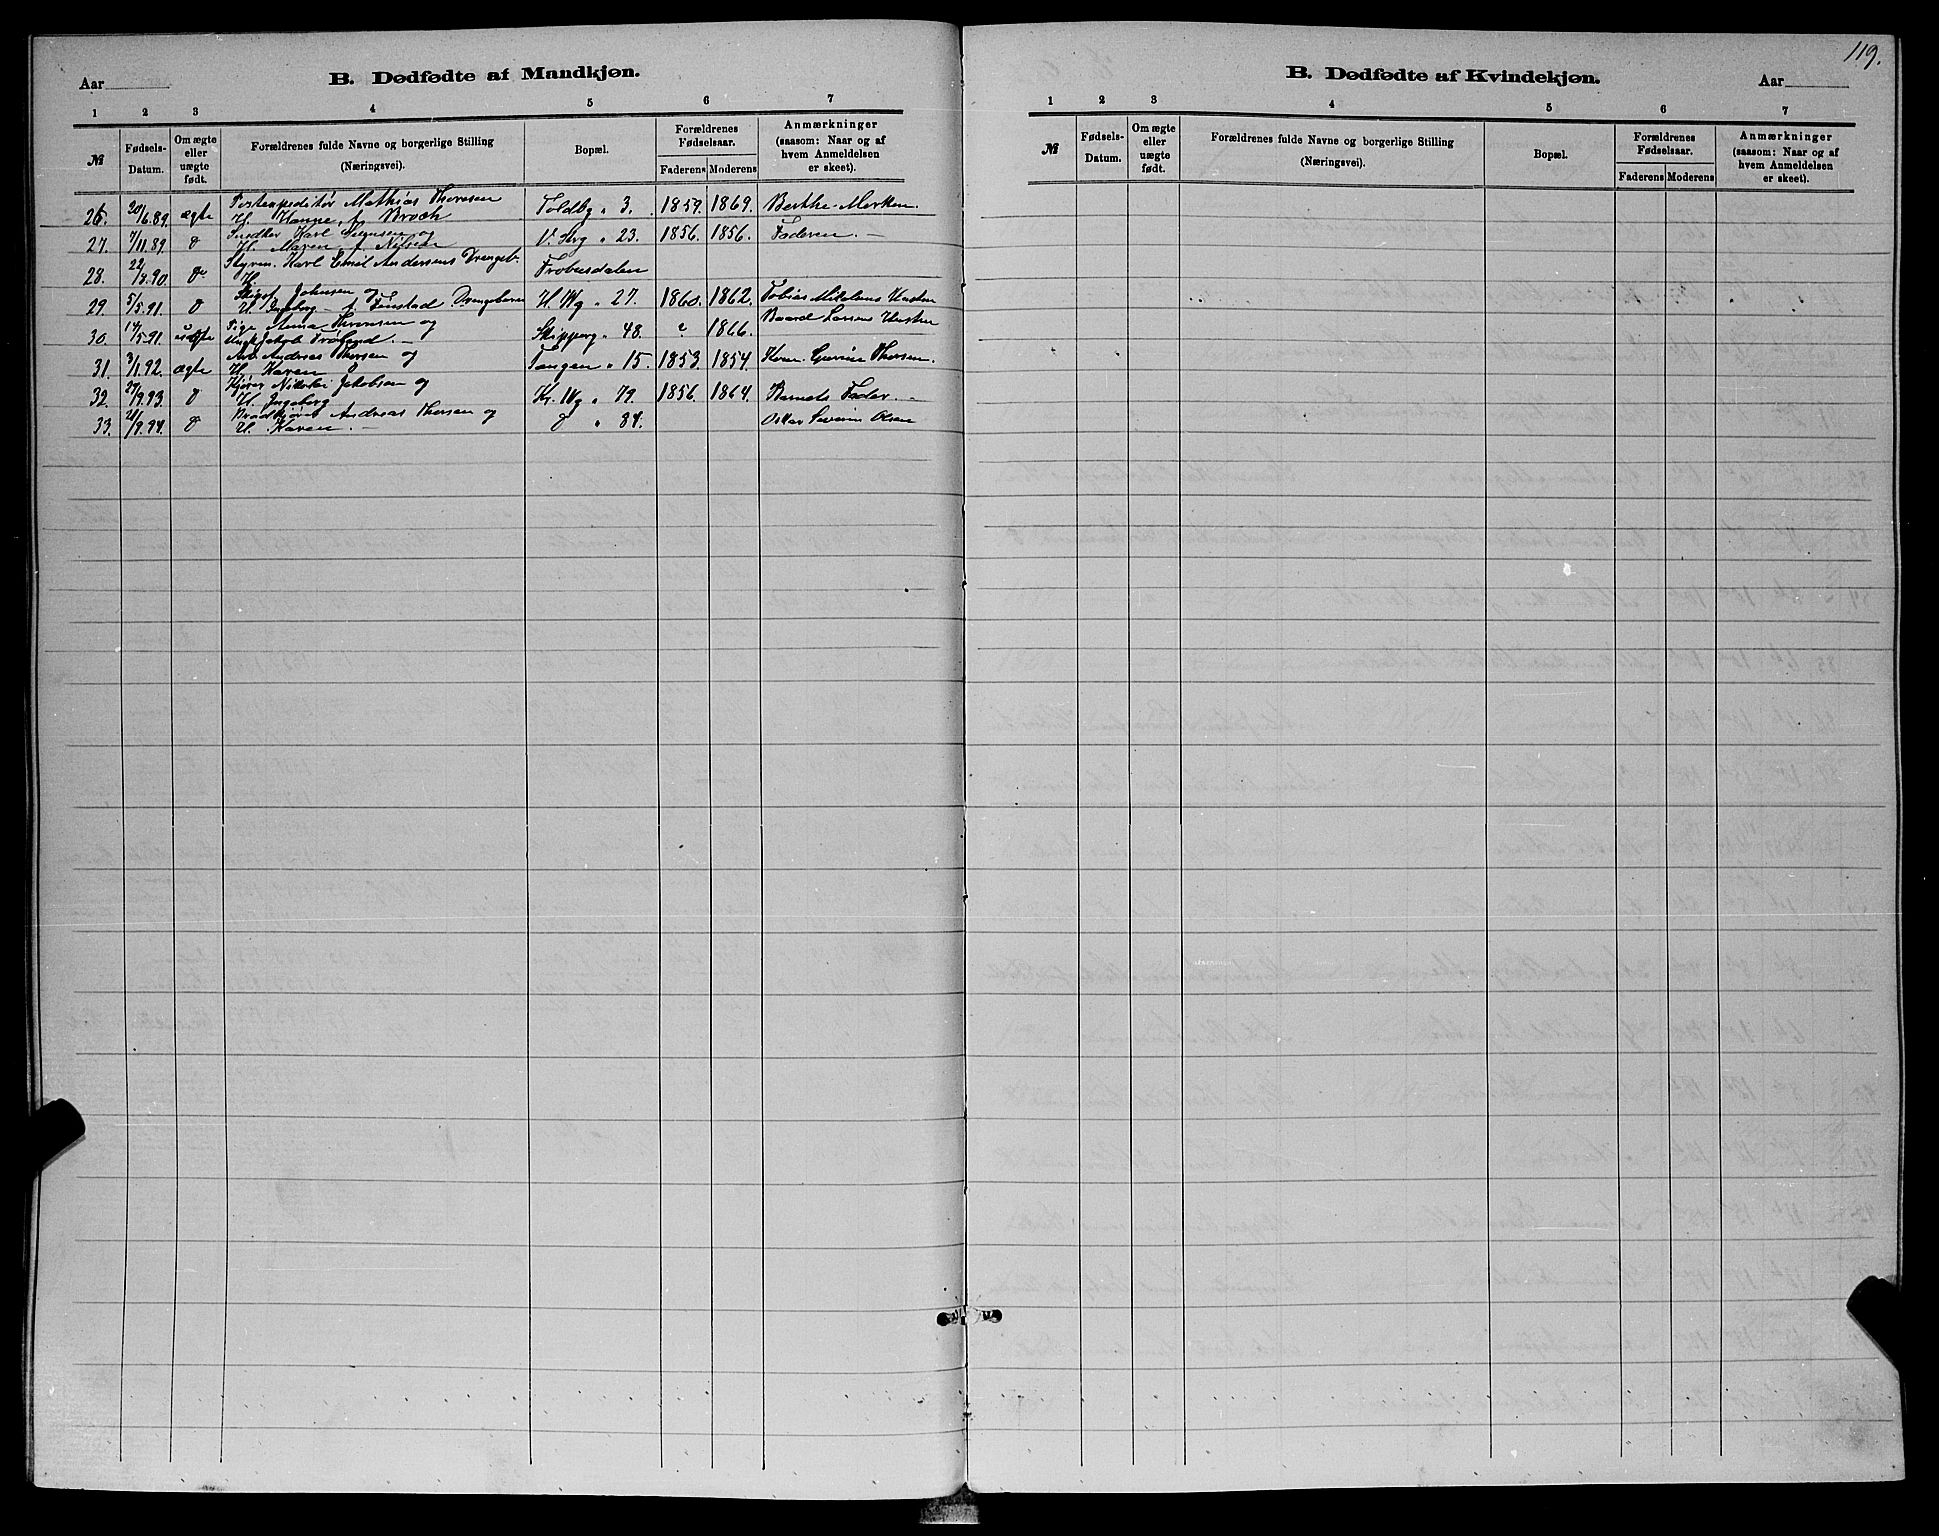 119.
Aar
B. Dødfødte af Mandkjøn.
1 2 3 4 5 6 7
№ Fødsels-Datum. Om ægte eller uægte født. Forældrenes fulde Navne og borgerlige Stilling (Næringsvei). Bopæl. Forældrenes Fødselsaar. Faderens Moderens Anmærkninger (saasom: Naar og af hvem Anmeldelsen er skeet).
26. 20/6.89. ægte Postexpeditør Mathias Thoresen Toldbg " 3. 1859. 1869. Berthe Morken.
H. Hanne f. Broch
27. 7/11.89. d Snedker Karl og V. Strg " 23. 1856. 1856. Faderen.—
H. Maren f. Nilsen
28. 22/8.90. do Styrm. Karl Emil Andersens Drengeb. Frobusdalen
H.
29. 5/5.91. d Johnsen og H. Wg " 27. 1860. 1862. Tobias Mikalsens Hustru
H. Ingeborg — f. Finstad Drengebarn
30. 14/5.91. uægte Pige Anna Thomsen og Skipperg " 48. " 1866. Baard Larsens Hustru
Ungk. Jakob
31. 3/1.92. ægte Arb. Andreas Thorsen og Tangen " 15. 1853. 1854. Thorsen.
H. Karen
32. 27/9.93. d Kjører Nikolai Jakobsen og Kr. Wg " 79. 1856. 1864. Barnets Fader.—
H. Ingeborg
33. 21/9.94. d Brødkjører Andreas Thorsen og d " 84. Oskar Severin Olsen
H. Karen.—
B. Dødfødte af Kvindekjøn.
Aar
1 2 3 4 5 6 7
№ Fødsels-Datum. Om ægte eller uægte født. Forældrenes fulde Navne og borgerlige Stilling (Næringsvei). Bopæl. Forældrenes Fødselsaar. Faderens Moderens Anmærkninger (saasom: Naar og af hvem Anmeldelsen er skeet).